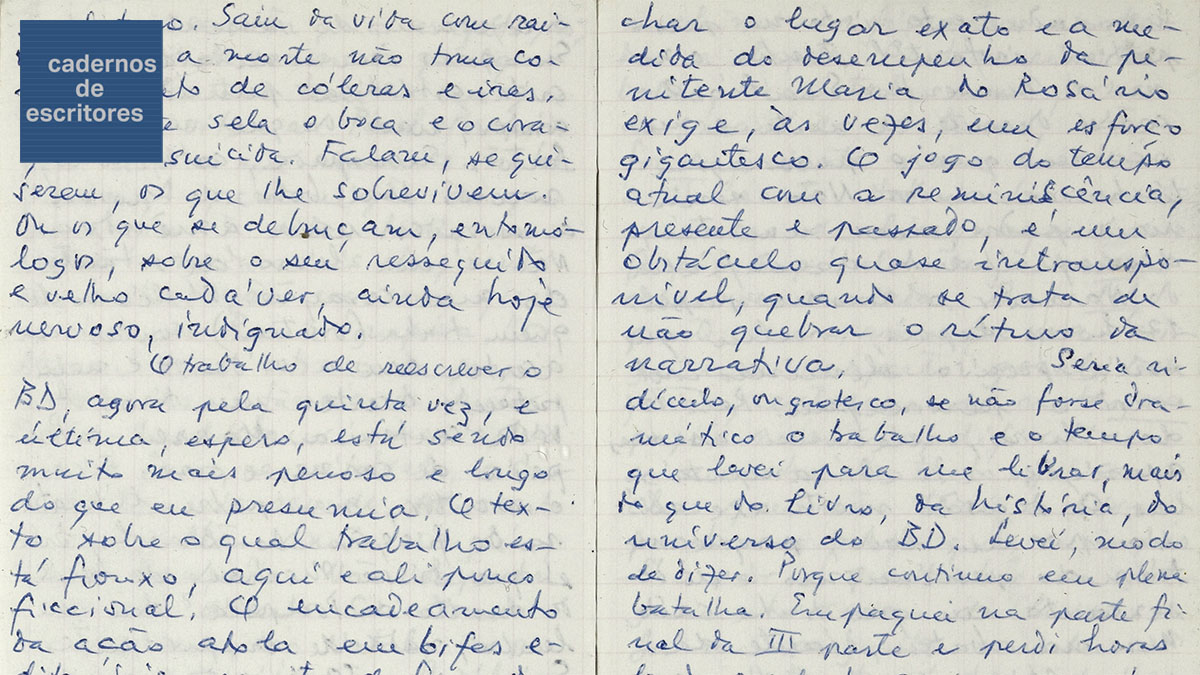 cadernos
de
escritores
. Saiu da vida com rai-
a morte não toma co-
de cóleras e iras,
sela a boca e o cora-
suicida. Falam, se qui-
serem, os que lhe sobrevivem.
Ou os que se debruçam, entomó-
logos, sobre o seu ressequido
e velho cadáver, ainda hoje
nervoso, indignado.
O trabalho de reescrever o
BD, agora pela quinta vez e
última, espero, está sendo
muito mais penoso e longo
do que eu presumia. O tex-
to sobre o qual trabalho es-
tá frouxo, aqui e ali pouco
ficcional. O encadeamento
da ação em bifes e
char o lugar exato e a me-
dida do desempenho da pe-
nitente Maria do Rosário
exige, às vezes, um esforço
gigantesco. O jogo do tempo
atual com a reminiscência,
presente e passado, é um
obstáculo quase intranspo-
nível, quando se trata de
não quebrar o rítmo da
narrativa. Seria ri-
dículo, ou grotesco, se não fosse dra-
mático o trabalho e o tempo
que levei para me librar, mais
do que do livro, da história, do
universo do BD. Levei, modo
de dizer. Porque continuo em plena
batalha. Empaquei na parte fi-
nal da III parte e perdi horas